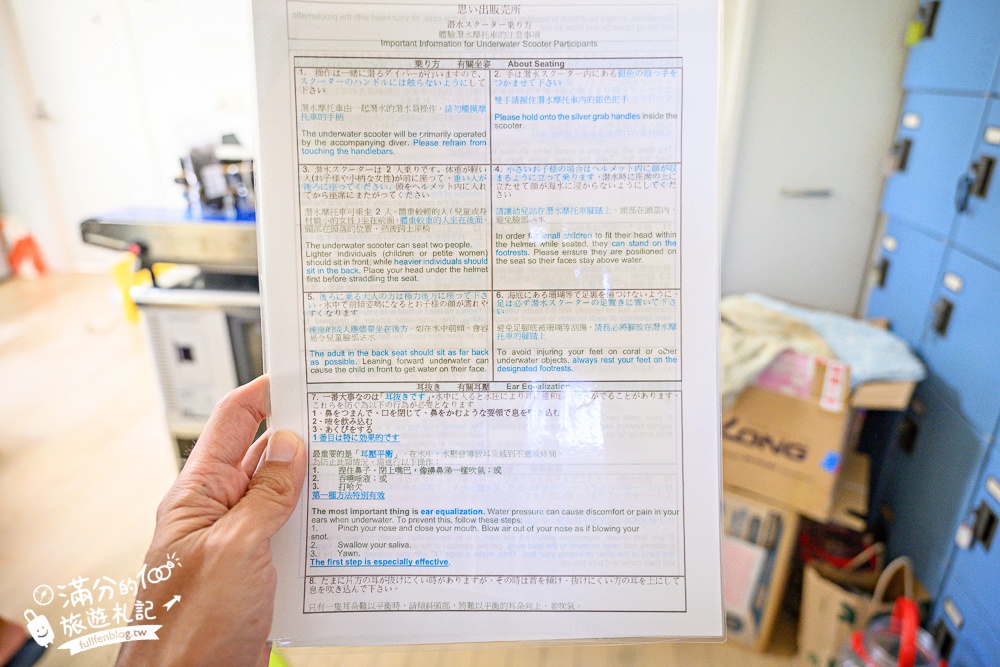 思い出販売所
潜水スクーター乗り方
體驗潛水摩托車的注意事項
Important Information for Underwater Scooter Participants
乗り方 有關坐姿 About Seating
1. 操作は一緒に潜るダイバーが行いますので、
スクーターのハンドルには触らないようにして
下さい
潛水摩托車由一起潛水的潛水員操作，請勿觸摸摩
托車的手柄
The underwater scooter will be primarily operated
by the accompanying diver. Please refrain from
touching the handlebars.
2. 手は潜水スクーター内にある銀色の取っ手を
つかませて下さい
雙手請握住潛水摩托車內的銀色把手
Please hold onto the silver grab handles inside the
scooter.
3. 潜水スクーターは 2 人乗りです。体重が軽い
人(お子様や小柄な女性)が前に座って、重い人が
後ろに座ってください。頭をヘルメット内に入れ
てから座席にまたがってください
潛水摩托車可乘坐 2 人。體重較輕的人(兒童或身
材嬌小的女性)坐在前面，體重較重的人坐在後面。
頭部在頭盔的位置，然後跨上座椅
The underwater scooter can seat two people.
Lighter individuals (children or petite women)
should sit in front, while heavier individuals should
sit in the back. Place your head under the helmet
first before straddling the seat.
4. 小さいお子様の場合はヘルメット内に顔が収
まるように立って乗ります，潜水時は座席の上に
立たせて顔が海水に浸からないようにしてくだ
さい
請讓幼兒站在潛水摩托車腳踏上，頭部在頭盔內，
避免臉部沾水
In order for small children to fit their head within
the helmet while seated, they can stand on the
footrests. Please ensure they are positioned on
the seat so their faces stay above water.
5. 後ろに乗る大人の方は極力後方に座って下さ
い，水中で前傾姿勢になるとお子様の顔が濡れや
すくなります
後座的成人應儘量坐在後方，如在水中前傾，會容
易令兒童臉部沾水
The adult in the back seat should sit as far back
as possible. Leaning forward underwater can
cause the child in front to get water on their face.
6. 海底にある珊瑚等で足裏を傷つけないように，
足は必ず潜水スクーターの足置きに置いて下さ
い
避免足腳底被珊瑚等刮傷，請務必將腳放在潛水摩
托車的腳踏上
To avoid injuring your feet on coral or other
underwater objects, always rest your feet on the
designated footrests.
耳抜き 有關耳壓 Ear Equalization
7. 一番大事なのは「耳抜きです」，水中に入ると水圧により耳に違和感や痛みがでることがあります，
これらを防ぐ為以下の行為が必要となります
1、鼻をつまんで、口を閉じて、鼻をかむような要領で息を吹き込む
2、唾を飲み込む
3、あくびをする
1 番目は特に効果的です
最重要的是「耳壓平衡」。在水中，水壓會導致耳朵感到不適或疼痛。
為防止此類情況，需進行以下操作：
1. 捏住鼻子，閉上嘴巴，像擤鼻涕一樣吹氣；或
2. 吞嚥唾液；或
3. 打哈欠
第一種方法特別有效
The most important thing is ear equalization. Water pressure can cause discomfort or pain in your
ears when underwater. To prevent this, follow these steps:
1. Pinch your nose and close your mouth. Blow air out of your nose as if blowing your
snot.
2. Swallow your saliva.
3. Yawn.
The first step is especially effective.
8. たまに片方の耳が抜けにくい時がありますが，その時は首を傾け，抜けにくい方の耳を上にして
息を吹き込んで下さい。
只有一隻耳朵難以平衡時，請傾斜頭部，將難以平衡的耳朵向上，並吹氣。
LONG
滿分的100
旅遊札記
fullfenblog.tw